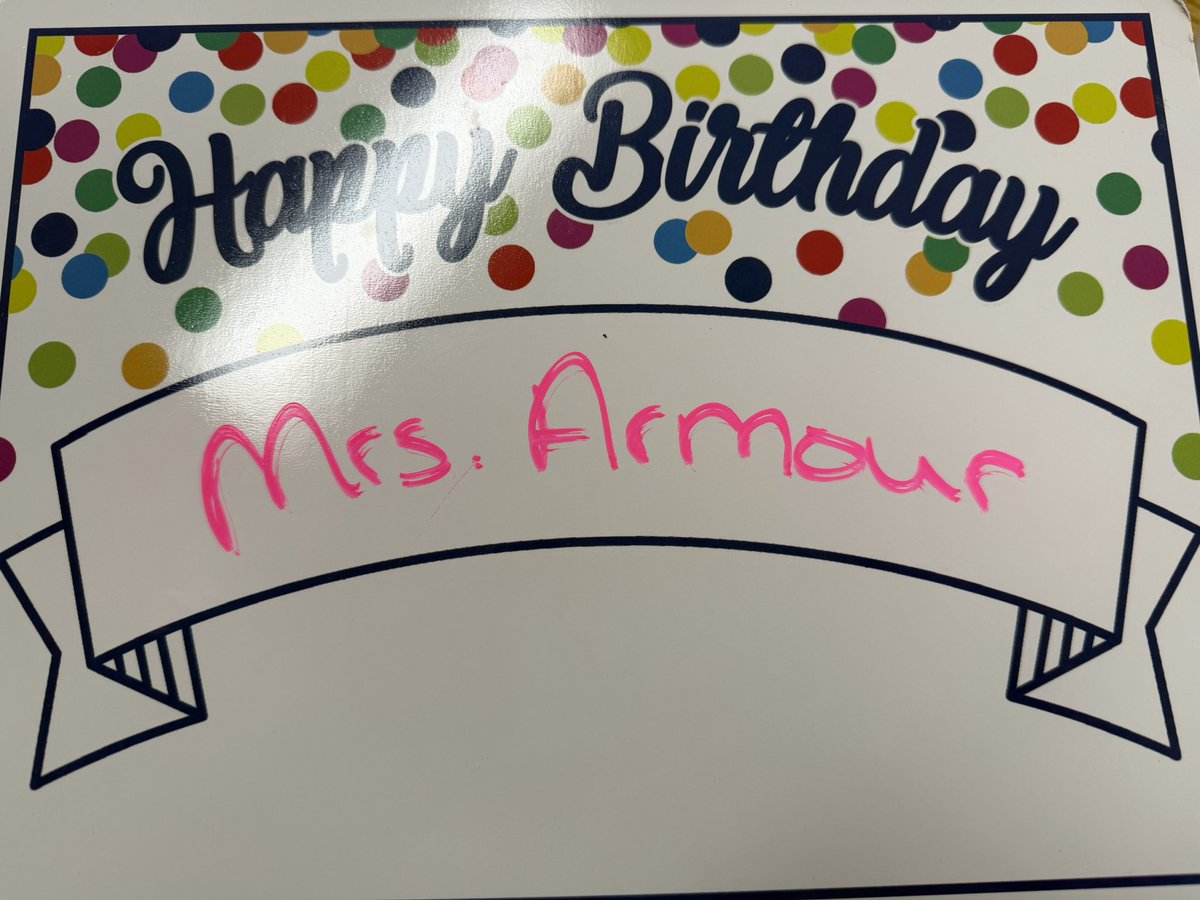 Happy Birthday
Mrs. Armour